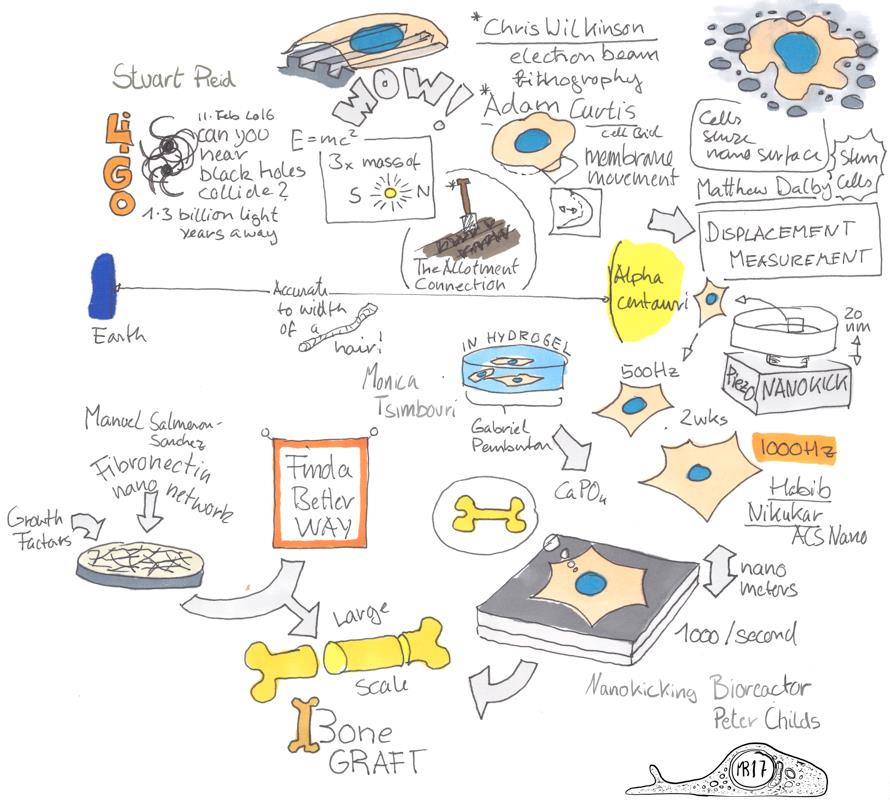 Stuart Reid
LIGO
11. Feb 2016
can you
hear
black holes
collide?
1.3 billion light
years away
WOW!
E=mc²
3x mass of
S N
* Chris Wilkinson
electron beam
lithography
* Adam Curtis
cell Biol
membrane
movement
Cells
sense
nano surface
Stem
Cells
Matthew Dalby
DISPLACEMENT
MEASUREMENT
*
The Allotment
Connection
Earth
Accurate
to width
of a
hair!
Alpha
centauri
20
nm
Piezo
NANOKICK
IN HYDROGEL
Monica
Tsimbouri
Gabriel
Pemberton
500Hz
2wks
1000Hz
Habib
Nikukar
ACS Nano
CaPO₄
Manuel Salmeron-
Sanchez
Fibronectin
nano network
Growth
Factors
Find a
Better
WAY
nano
meters
1000/second
Large
Scale
Bone
GRAFT
Nanokicking Bioreactor
Peter Childs
MR17